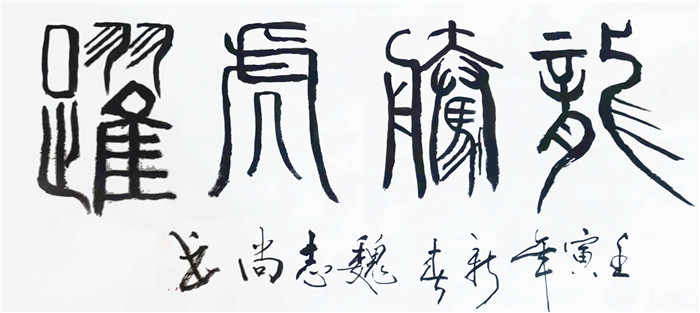 龍騰虎躍
壬寅年新春魏志尚书